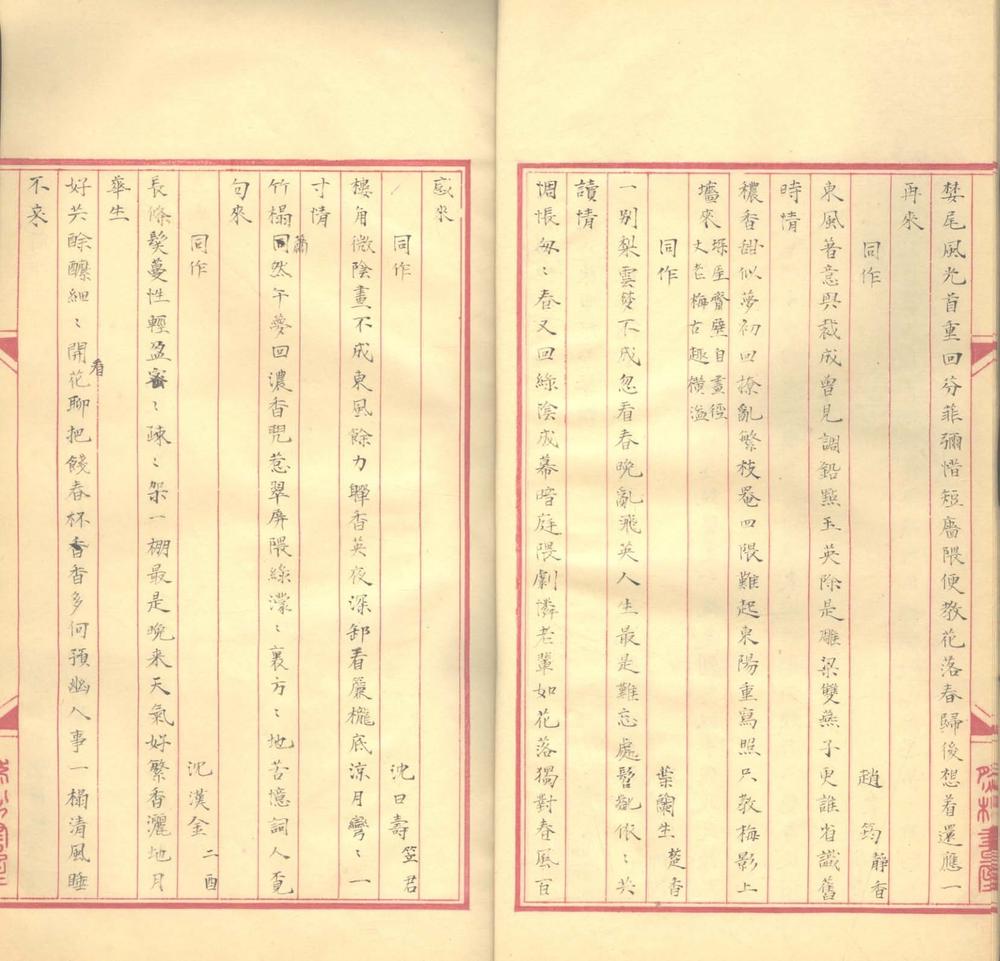 婪尾風光首重回芬菲彌惜短牆隈便教花落春歸後想着還應一
再來
同作 趙筠靜香
東風著意與裁成曾見調鉛點玉英除是雕梁雙燕子更誰省識舊
時情
穠香甜似夢初回撩亂繁枝罨四隈難起東陽重寫照只教梅影上
牆來琛厓齋壁自畫徑丈老梅古趣橫溢
同作 葉蘭生楚香
一別梨雲夢不成忽看春晚亂飛英人生最是難忘處髻亂依〻共
讀情
惆悵匆〻春又回綠陰成幕暗庭隈劇憐老輩如花落獨對春風百
感來
同作 沈曰壽笠君
樓角微陰畫不成東風餘力嚲香英夜深卸看簾櫳底涼月彎〻一
寸情
竹榻蕭然午夢回濃香兜惹翠屏隈綠濛〻裏方〻地苦憶詞人覓
句來
同作 沈漢金二酉
長條髮蔓性輕盈密〻疎〻架一棚最是晚来天氣好繁香灑地月
華生
好共酴醾細〻開看花聊把餞春杯香香多何預幽人事一榻清風睡
不來